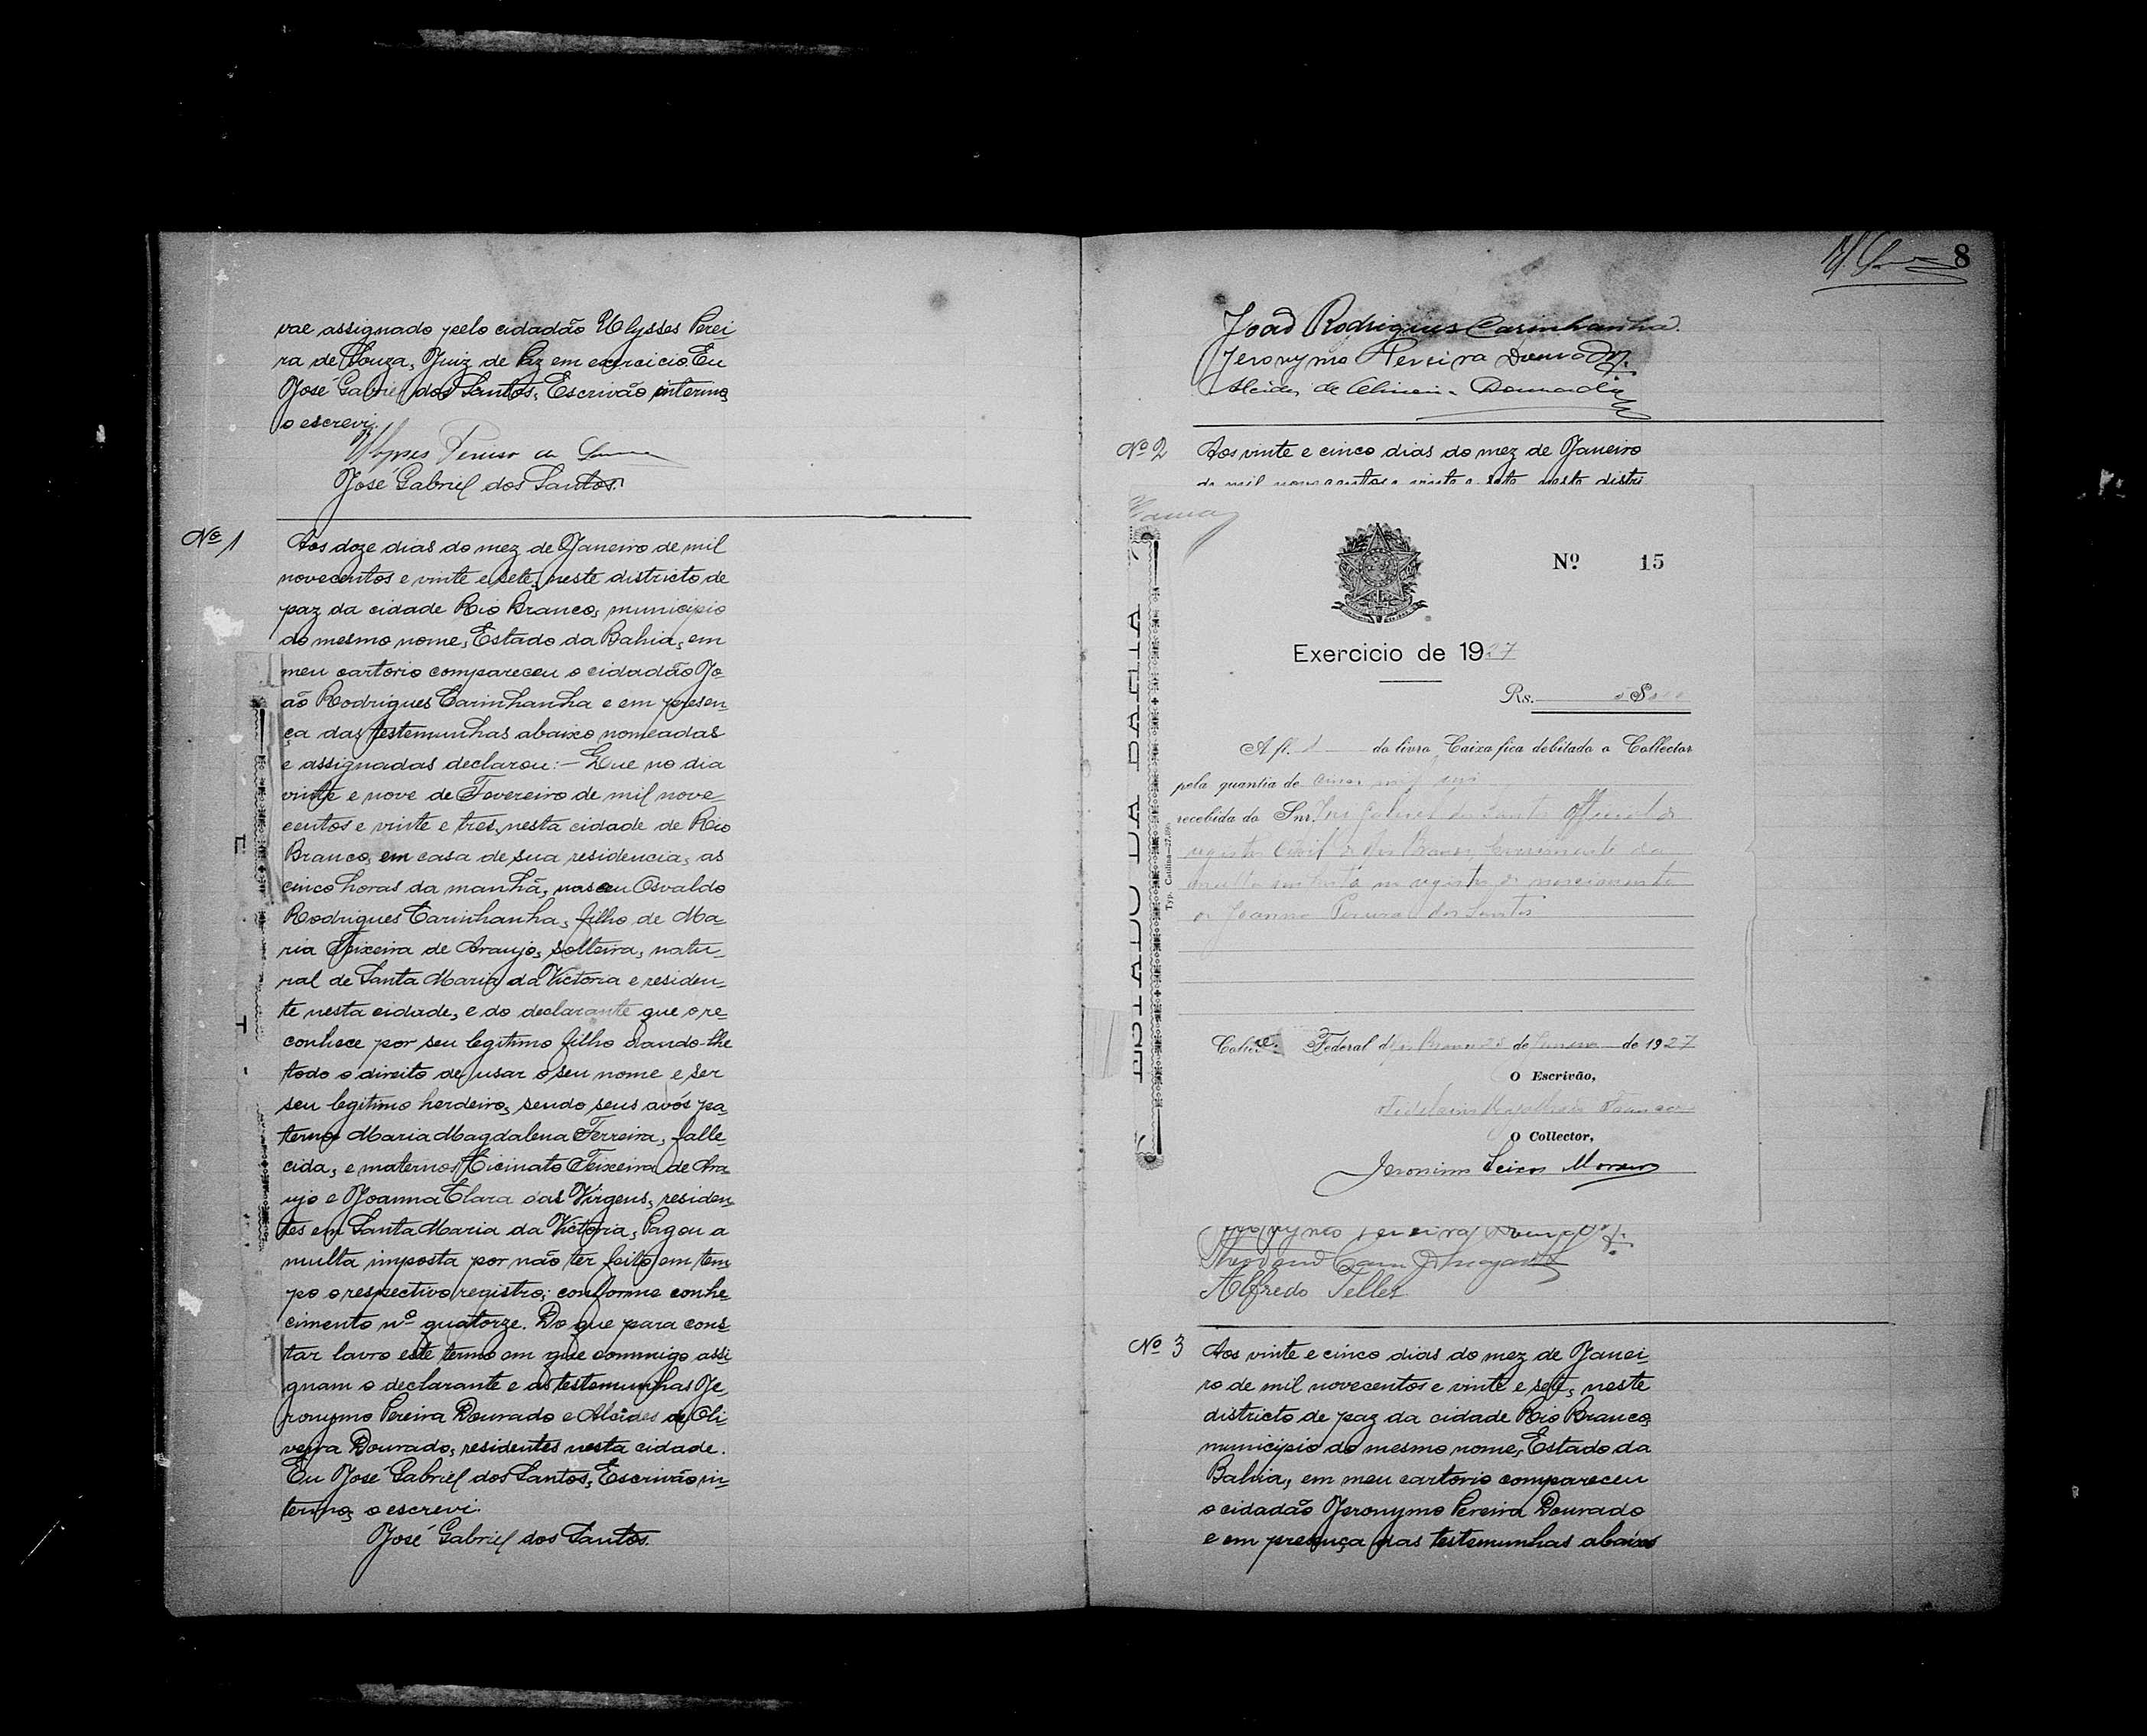 vae assignado pelo cidadão Ulysses Perei
ra de Souza, Juiz de Paz em exercicio. Eu
José Gabriel dos Santos, Escrivão interino,
o escrevi.
José Gabriel dos Santos.
Nº 1
Aos doze dias do mez de Janeiro de mil
novecentos e vinte e sete, neste districto de
paz da cidade Rio Branco, municipio
do mesmo nome, Estado da Bahia, em
meu cartorio compareceu o cidadão Jo-
ão Rodrigues Carinhanha e em presen-
ça das testemunhas abaixo nomeadas
e assignadas declarou:— Que no dia
vinte e nove de Fevereiro de mil nove-
centos e vinte e tres, nesta cidade de Rio
Branco, em casa de sua residencia, as
cinco horas da manhã, nasceu Osvaldo
Rodrigues Carinhanha, filho de Ma-
ria Teixeira de Araujo, solteira, natu-
ral de Santa Maria da Victoria e residen-
te nesta cidade, e do declarante que o re-
conhece por seu legitimo filho dando-lhe
todo o direito de usar o seu nome e ser
seu legitimo herdeiro, sendo seus avós pa
ternos Maria Magdalena Ferreira, falle-
cida, e maternos Teixeira de Ara
ujo e Joanna Clara das Virgens, residen-
tes em Santa Maria da Victoria, Pagou a
multa imposta por não ter feito em tem-
po o respectivo registro; conforme conhe-
cimento nº quatorze. Do que para cons-
tar lavro este termo em que commigo assi
gnam o declarante e as testemunhas Je-
ronymo Pereira Dourado e Alcides de Oli-
veira Dourado, residentes nesta cidade.
Eu José Gabriel dos Santos, Escrivão in-
terino, o escrevi.
José Gabriel dos Santos.
8
João Rodrigues Carinhanha.
Jeronymo Pereira Dourado
Alcides de Oliveira Dourado
Nº 2
Aos vinte e cinco dias do mez de Janeiro
de mil novecentos e vinte e sete neste distri
ESTADO DA BAHIA
Nº 15
Exercicio de 1927
Rs. $
A fl. do livro Caixa fica debitado o Collector
pela quantia de cinco mil reis
recebida do Snr. José Gabriel dos Santos Official do
registro Civil de Rio Branco
multa no registro de nascimento
de Joanna Pereira dos Santos
Federal de Rio Branco 25 de Janeiro de 1927
O Escrivão,
O Collector,
Jeronimo Moreno
Jeronymo Pereira Dourado
Alfredo Telles
Nº 3
Aos vinte e cinco dias do mez de Janei-
ro de mil novecentos e vinte e sete, neste
districto de paz da cidade Rio Branco,
municipio do mesmo nome, Estado da
Bahia, em meu cartorio compareceu
o cidadão Jeronymo Pereira Dourado
e em presença das testemunhas abaixo